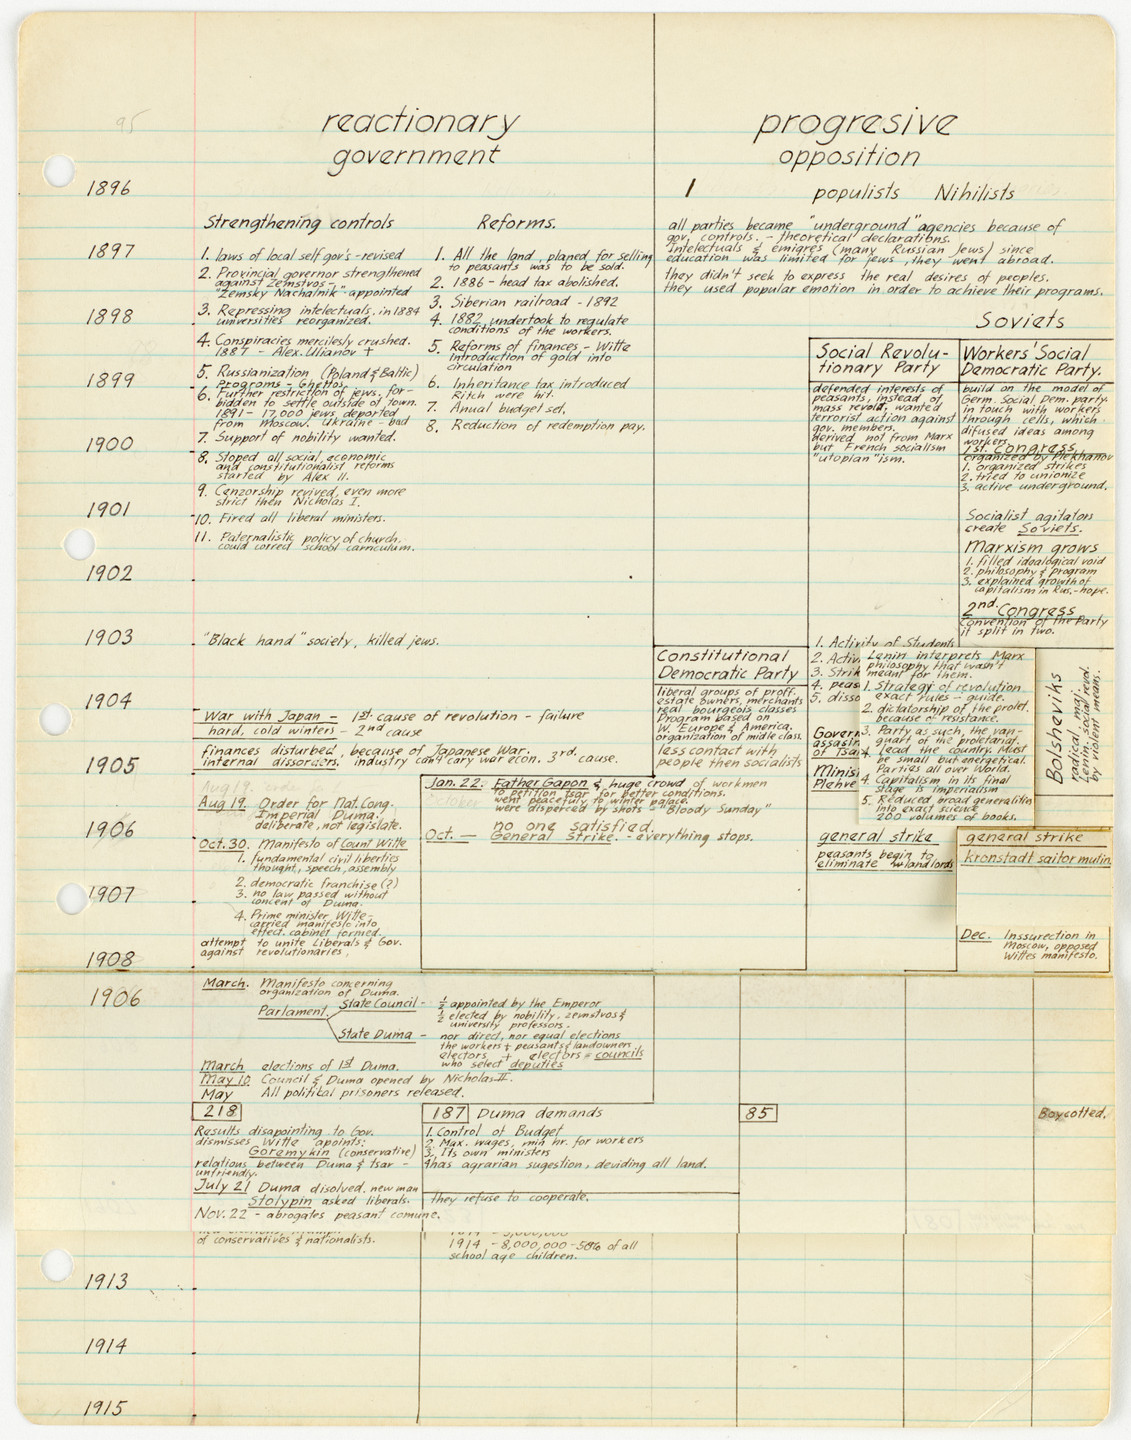 reactionary
government
progresive
opposition
95
1896
1897
1898
1899
1900
1901
1902
1903
1904
1905
1906
1907
1908
1906
1913
1914
1915
Strengthening controls
1. laws of local self gov's - revised
2. Provincial governor strengthened
against Zemstvos -
"Zemsky Nachalnik" appointed
3. Repressing intelectuals, in 1884
universities reorganized.
4. Conspiracies mercilesly crushed.
1887 - Alex. Ulianov +
5. Russianization (Poland & Baltic)
Programs - Ghettos,
6. Further restriction of jews, for-
bidden to settle outside of town.
1891 - 17,000 jews, deported
from Moscow. Ukraine - bad
7. Support of nobility wanted.
8. Stoped all social, economic
and constitutionalist reforms
started by Alex II.
9. Cenzorship revived, even more
strict then Nicholas I.
10. Fired all liberal ministers.
11. Paternalistic policy of church.
could correct school curriculum.
"Black hand" society, killed jews.
Reforms.
1. All the land, planed for selling
to peasants was to be sold.
2. 1886 - head tax abolished.
3. Siberian railroad - 1892
4. 1882 undertook to regulate
conditions of the workers.
5. Reforms of finances - Witte
Introduction of gold into
circulation
6. Inheritance tax introduced
Ritch were hit.
7. Anual budget set.
8. Reduction of redemption pay.
War with Japan - 1st. cause of revolution - failure
hard, cold winters - 2nd cause
finances disturbed, because of Japanese War.
internal dissorders, industry can't cary war econ. 3rd. cause.
Aug 19. Order for Nat. Cong.
Imperial Duma.
deliberate, not legislate.
Oct. 30. Manifesto of Count Witte
1. fundamental civil liberties
thought, speech, assembly
2. democratic franchise (?)
3. no law passed without
concent of Duma.
4. Prime minister Witte -
carried manifesto into
effect. cabinet formed.
attempt to unite Liberals & Gov.
against revolutionaries.
Jan. 22: Father Gapon & huge crowd of workmen
to petition tsar for better conditions.
went peacefuly to winter palace.
were disperced by shots - "Bloody Sunday"
no one satisfied.
Oct. — General Strike. - everything stops.
1 populists Nihilists
all parties became "underground" agencies because of
gov. controls. - theoretical declarations.
Intelectuals & emigres (many Russian Jews) since
education was limited for jews, they went abroad.
they didn't seek to express the real desires of peoples.
they used popular emotion in order to achieve their programs.
Soviets
Social Revolu-
tionary Party
defended interests of
peasants, instead of
mass revolt, wanted
terrorist action against
gov. members.
derived not from Marx
but French socialism
"utopian" ism.
Workers' Social
Democratic Party.
build on the model of
Germ. Social. Dem. party.
in touch with workers
through cells, which
difused ideas among
workers.
1st. Congress,
organized by Plekhanov
1. organized strikes
2. tried to unionize
3. active underground.
Socialist agitators
create Soviets.
Marxism grows
1. filled idealogical void
2. philosophy & program
3. explained growth of
capitalism in Rus. - hope.
2nd. Congress
convention of the Party
it split in two.
Constitutional
Democratic Party
liberal groups of proff.
estate owners, merchants
real bourgeois classes
Program based on
W. Europe & America.
organization of midle class.
less contact with
people then socialists
1. Activity of Students
2. Activ
3. Strik
4. peas
5. disso
Govern
assasin
of Tsar
Minis
Plehve
general strike
peasants begin to
eliminate landlords
Lenin interprets Marx
philosophy that wasn't
meant for them.
1. Strategy of revolution
exact rules - guide.
2. dictatorship of the prolet.
because of resistance.
3. Party as such, the van-
guart of the proletariat.
Lead the country. Must
be small but energetical.
Parties all over World.
4. Capitalism in its final
stage is imperialism
5. Reduced broad generalitin
into exact science
200 volumes of books.
Bolsheviks
radical, maj.
Lenin. social revol.
by violent means.
general strike
kronstadt sailor mutin.
Dec. Inssurection in
Moscow, opposed
Wittes manifesto.
March. Manifesto concerning
organization of Duma.
Parlament
State Council - ½ appointed by the Emperor
½ elected by nobility, zemstvos &
university professors.
State Duma - nor direct, nor equal elections
the workers + peasants & landowners
electors + electors = councils
who select deputies
March elections of 1st Duma.
May 10. Council & Duma opened by Nicholas II.
May All politikal prisoners released.
218
Results disapointing to Gov.
dismisses Witte apoints:
Goremykin (conservative)
relations between Duma & tsar -
unfriendly.
July 21 Duma disolved, new man
Stolypin asked liberals.
Nov. 22 - abrogates peasant comune.
187 Duma demands
1. Control of Budget
2. Max. wages, min hr. for workers
3. Its own ministers
4 has agrarian sugestion, deviding all land.
they refuse to cooperate.
85
Boycotted.
of conservatives & nationalists.
1914 - 8,000,000 - 50% of all
school age children.